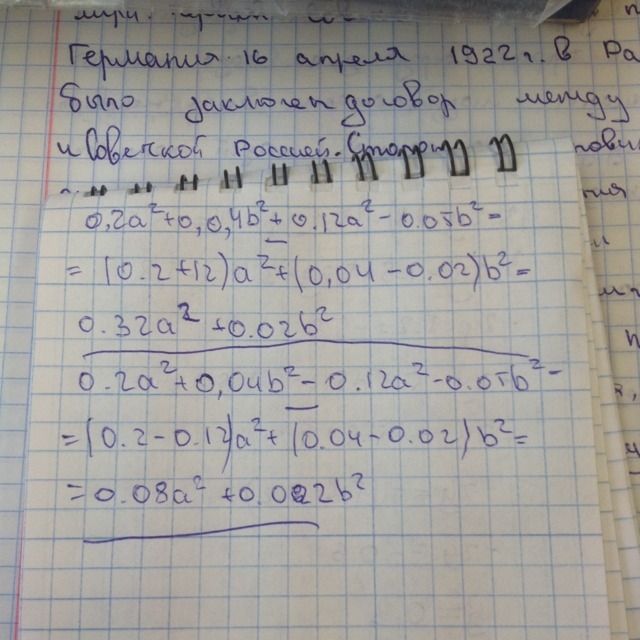 Германия 16 апреля 1922 г. в Ра
было заключен договор между
и Советской Россией.
0,2a²+0,0,4b²+0.12a²-0.05b²=
=(0.2+12)a²+(0,04-0.02)b²=
0.32a²+0.02b²
0.2a²+0,04b²-0.12a²-0.05b²-
=(0.2-0.12)a²+(0.04-0.02)b²=
=0.08a²+0.002b²